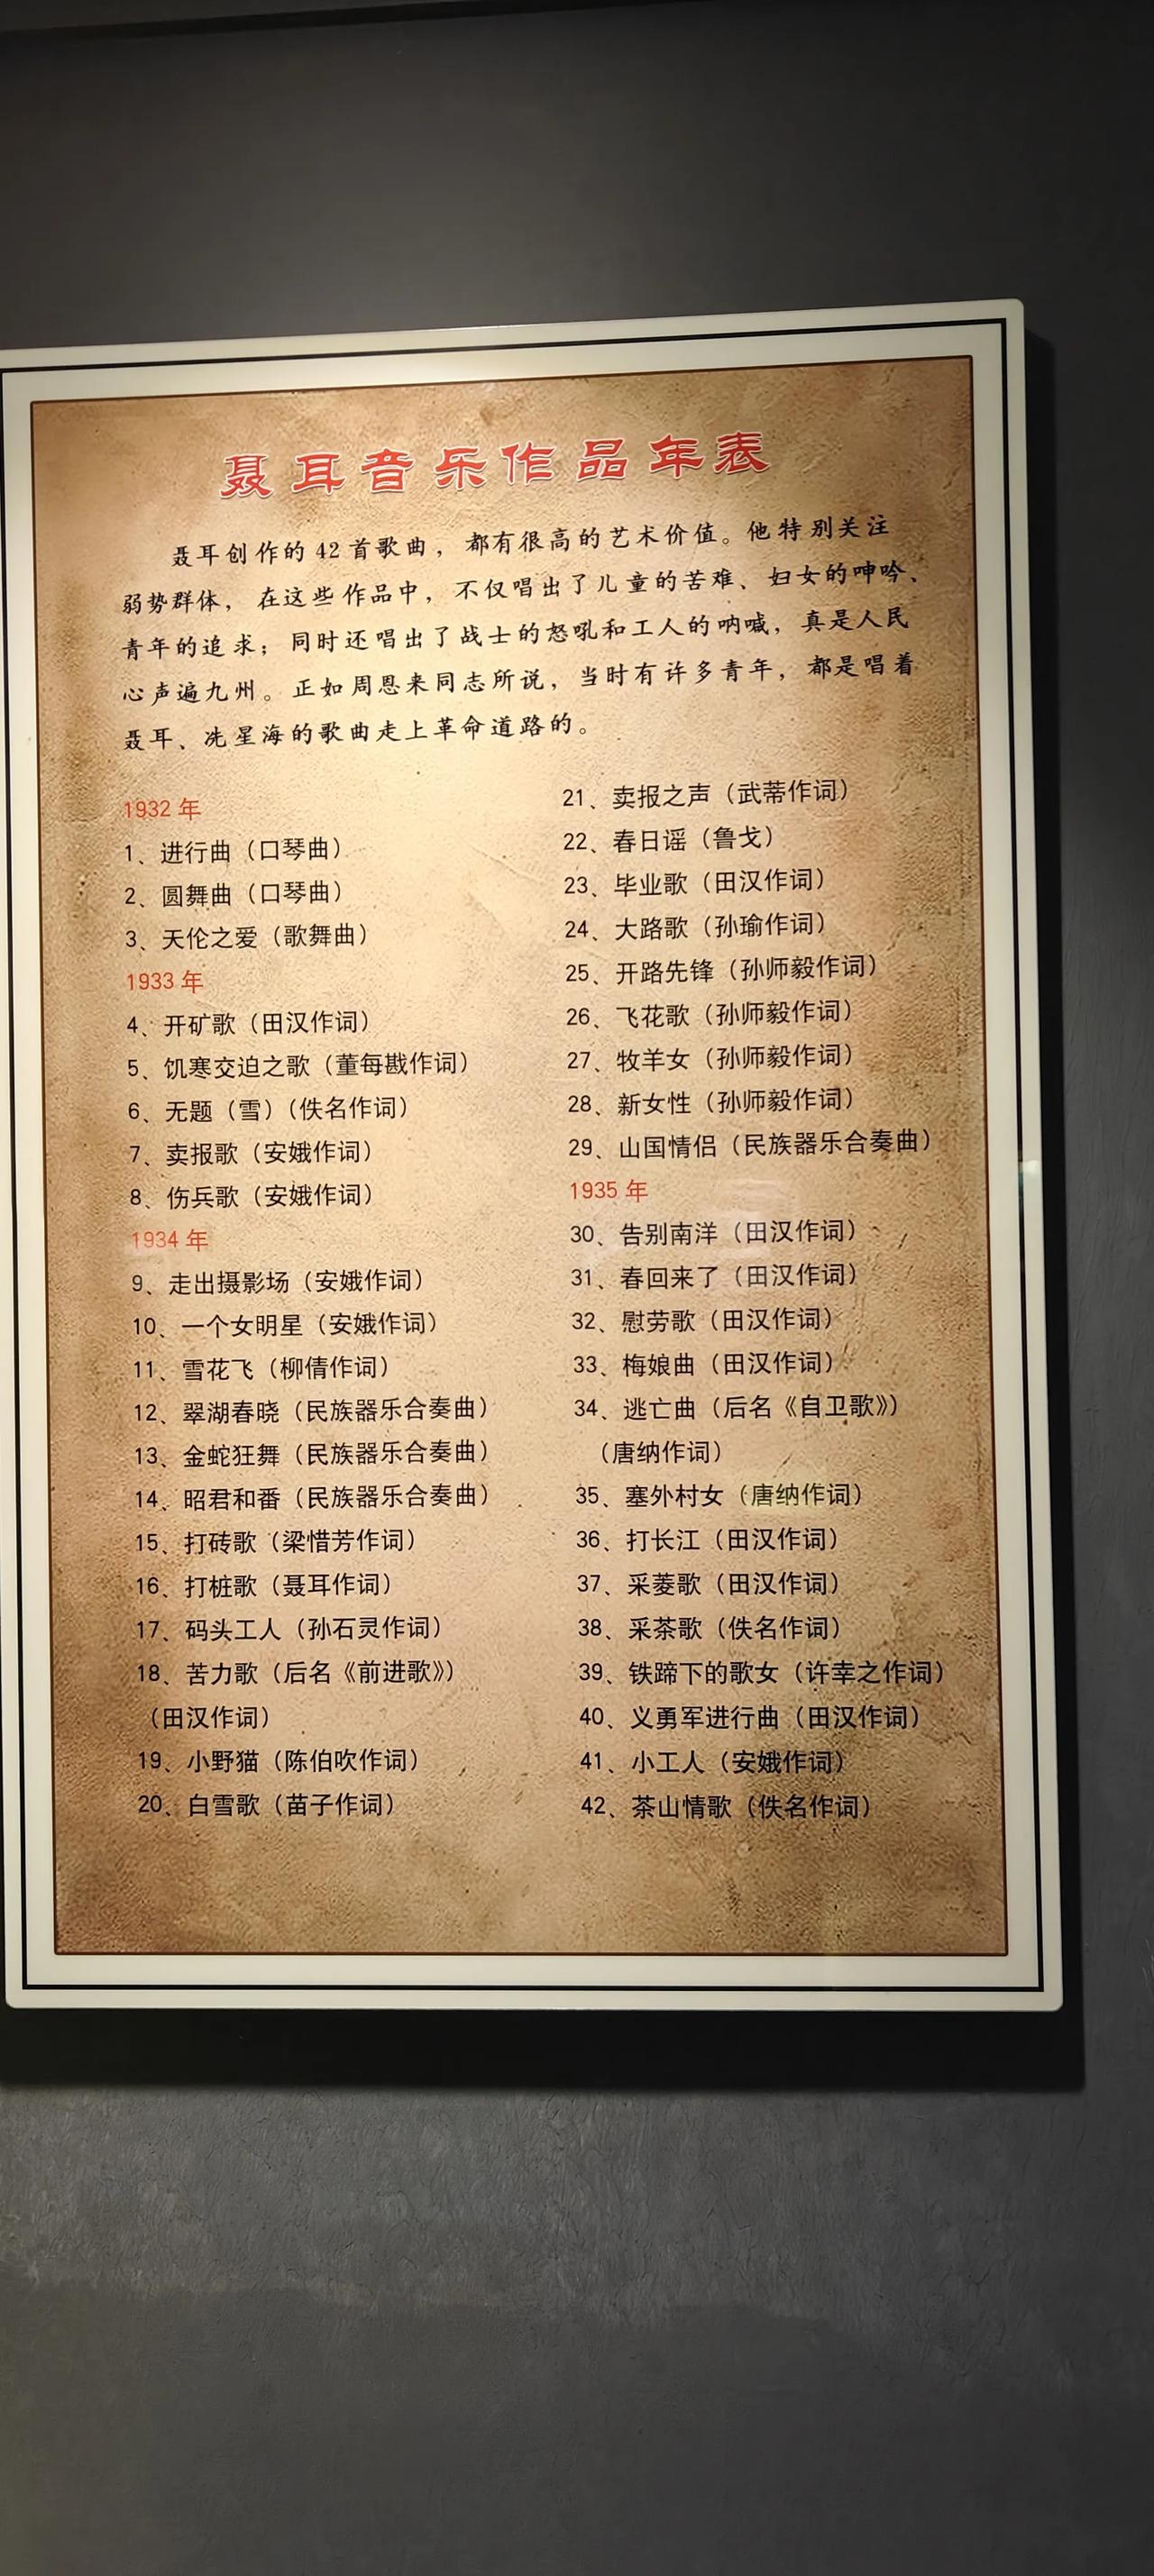 聂耳音乐作品年表
聂耳创作的42首歌曲，都有很高的艺术价值。他特别关注
弱势群体，在这些作品中，不仅唱出了儿童的苦难、妇女的呻吟、
青年的追求；同时还唱出了战士的怒吼和工人的呐喊，真是人民
心声遍九州。正如周恩来同志所说，当时有许多青年，都是唱着
聂耳、冼星海的歌曲走上革命道路的。
1932年
1、进行曲（口琴曲）
2、圆舞曲（口琴曲）
3、天伦之爱（歌舞曲）
1933年
4、开矿歌（田汉作词）
5、饥寒交迫之歌（董每戡作词）
6、无题（雪）（佚名作词）
7、卖报歌（安娥作词）
8、伤兵歌（安娥作词）
1934年
9、走出摄影场（安娥作词）
10、一个女明星（安娥作词）
11、雪花飞（柳倩作词）
12、翠湖春晓（民族器乐合奏曲）
13、金蛇狂舞（民族器乐合奏曲）
14、昭君和番（民族器乐合奏曲）
15、打砖歌（梁惜芳作词）
16、打桩歌（聂耳作词）
17、码头工人（孙石灵作词）
18、苦力歌（后名《前进歌》）
（田汉作词）
19、小野猫（陈伯吹作词）
20、白雪歌（苗子作词）
21、卖报之声（武蒂作词）
22、春日谣（鲁戈）
23、毕业歌（田汉作词）
24、大路歌（孙瑜作词）
25、开路先锋（孙师毅作词）
26、飞花歌（孙师毅作词）
27、牧羊女（孙师毅作词）
28、新女性（孙师毅作词）
29、山国情侣（民族器乐合奏曲）
1935年
30、告别南洋（田汉作词）
31、春回来了（田汉作词）
32、慰劳歌（田汉作词）
33、梅娘曲（田汉作词）
34、逃亡曲（后名《自卫歌》）
（唐纳作词）
35、塞外村女（唐纳作词）
36、打长江（田汉作词）
37、采菱歌（田汉作词）
38、采茶歌（佚名作词）
39、铁蹄下的歌女（许幸之作词）
40、义勇军进行曲（田汉作词）
41、小工人（安娥作词）
42、茶山情歌（佚名作词）